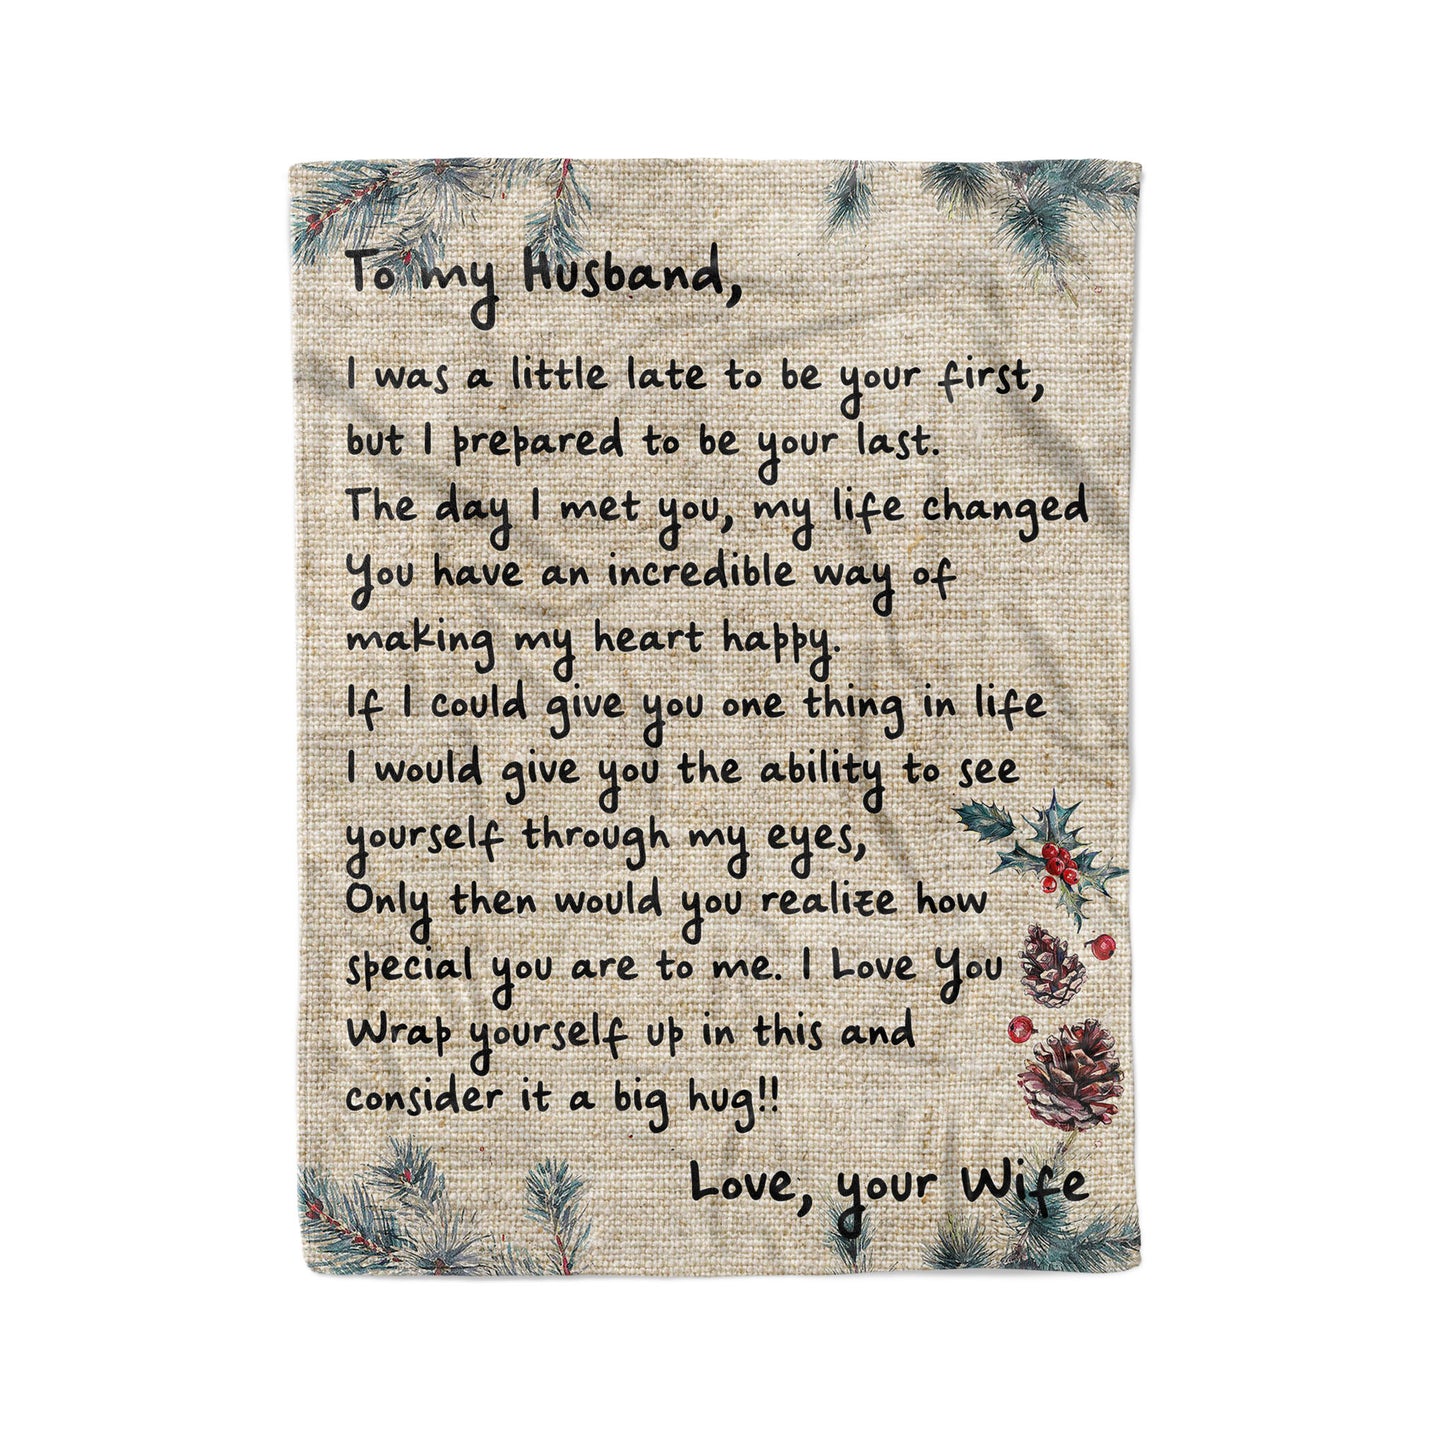 To my Husband,
I was a little late to be your first,
but I prepared to be your last.
The day I met you, my life changed
You have an incredible way of
making my heart happy.
If I could give you one thing in life
I would give you the ability to see
yourself through my eyes,
Only then would you realize how
special you are to me. I Love You
Wrap yourself up in this and
consider it a big hug!!
Love, your Wife